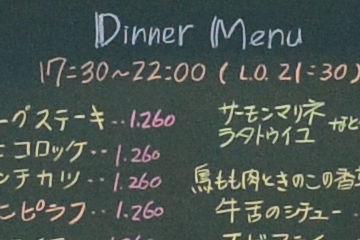 Dinner Menu
17:30～22:00 (L.O. 21:30)
ーグステーキ‥1.260
コロッケ‥1.260
ンチカツ‥1.260
ピラフ‥1.260
サーモンマリネ
ラタトゥイユ など
鳥もも肉ときのこの香草
牛舌のシチュー